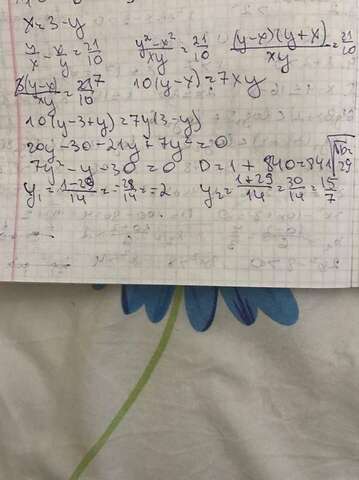 x=3-y
y/x - x/y = 21/10   (y²-x²)/xy = 21/10   (y-x)(y+x)/xy = 21/10
3(y-x)/xy = 21 7/10   10(y-x)=7xy
10(y-3+y)=7y(3-y)
20y-30-21y+7y²=0
7y²-y-30=0   D=1+840=841
29
y₁=(1-29)/14=-28/14=-2   y₂=(1+29)/14=30/14=15/7